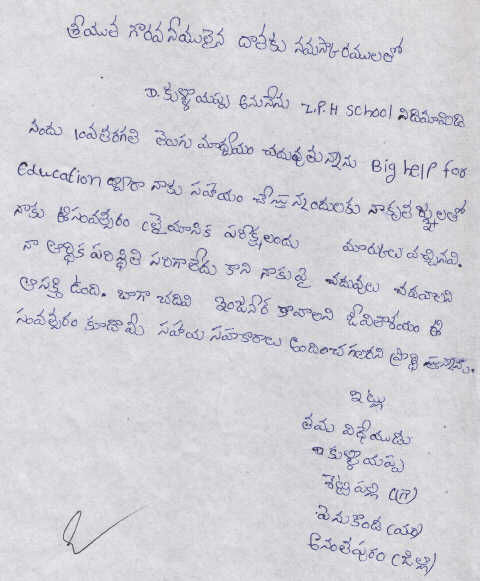 శ్రీయుత గౌరవనీయులైన దాతకు నమస్కారములతో
D. కుళ్ళాయప్ప అనునేను Z.P.H School నిడిమామిడి
నందు 10వతరగతి తెలుగు మాధ్యమం చదువుతున్నాను Big help for
Education ద్వారా నాకు సహాయం చేస్తున్నందులకు నా కృతజ్ఞతలతో
నాకు ఈసంవత్సరం త్రైమాసిక పరీక్షలందు మార్కులు వచ్చినవి.
నా ఆర్థిక పరిస్థితి సరిగాలేదు కాని నాకు పై చదువులు చదవాలని
ఆసక్తి ఉంది. బాగా చదివి ఇంజనీర్ కావాలని జీవితాశయం ఈ
సంవత్సరం కూడా మీ సహాయ సహకారాలు అందించగలరని ప్రార్థిస్తున్నాను.
ఇట్లు
తమ విధేయుడు
D కుళ్ళాయప్ప
శెట్టిపల్లి (గ్రా)
పెనుకొండ (మం)
అనంతపురం (జిల్లా)